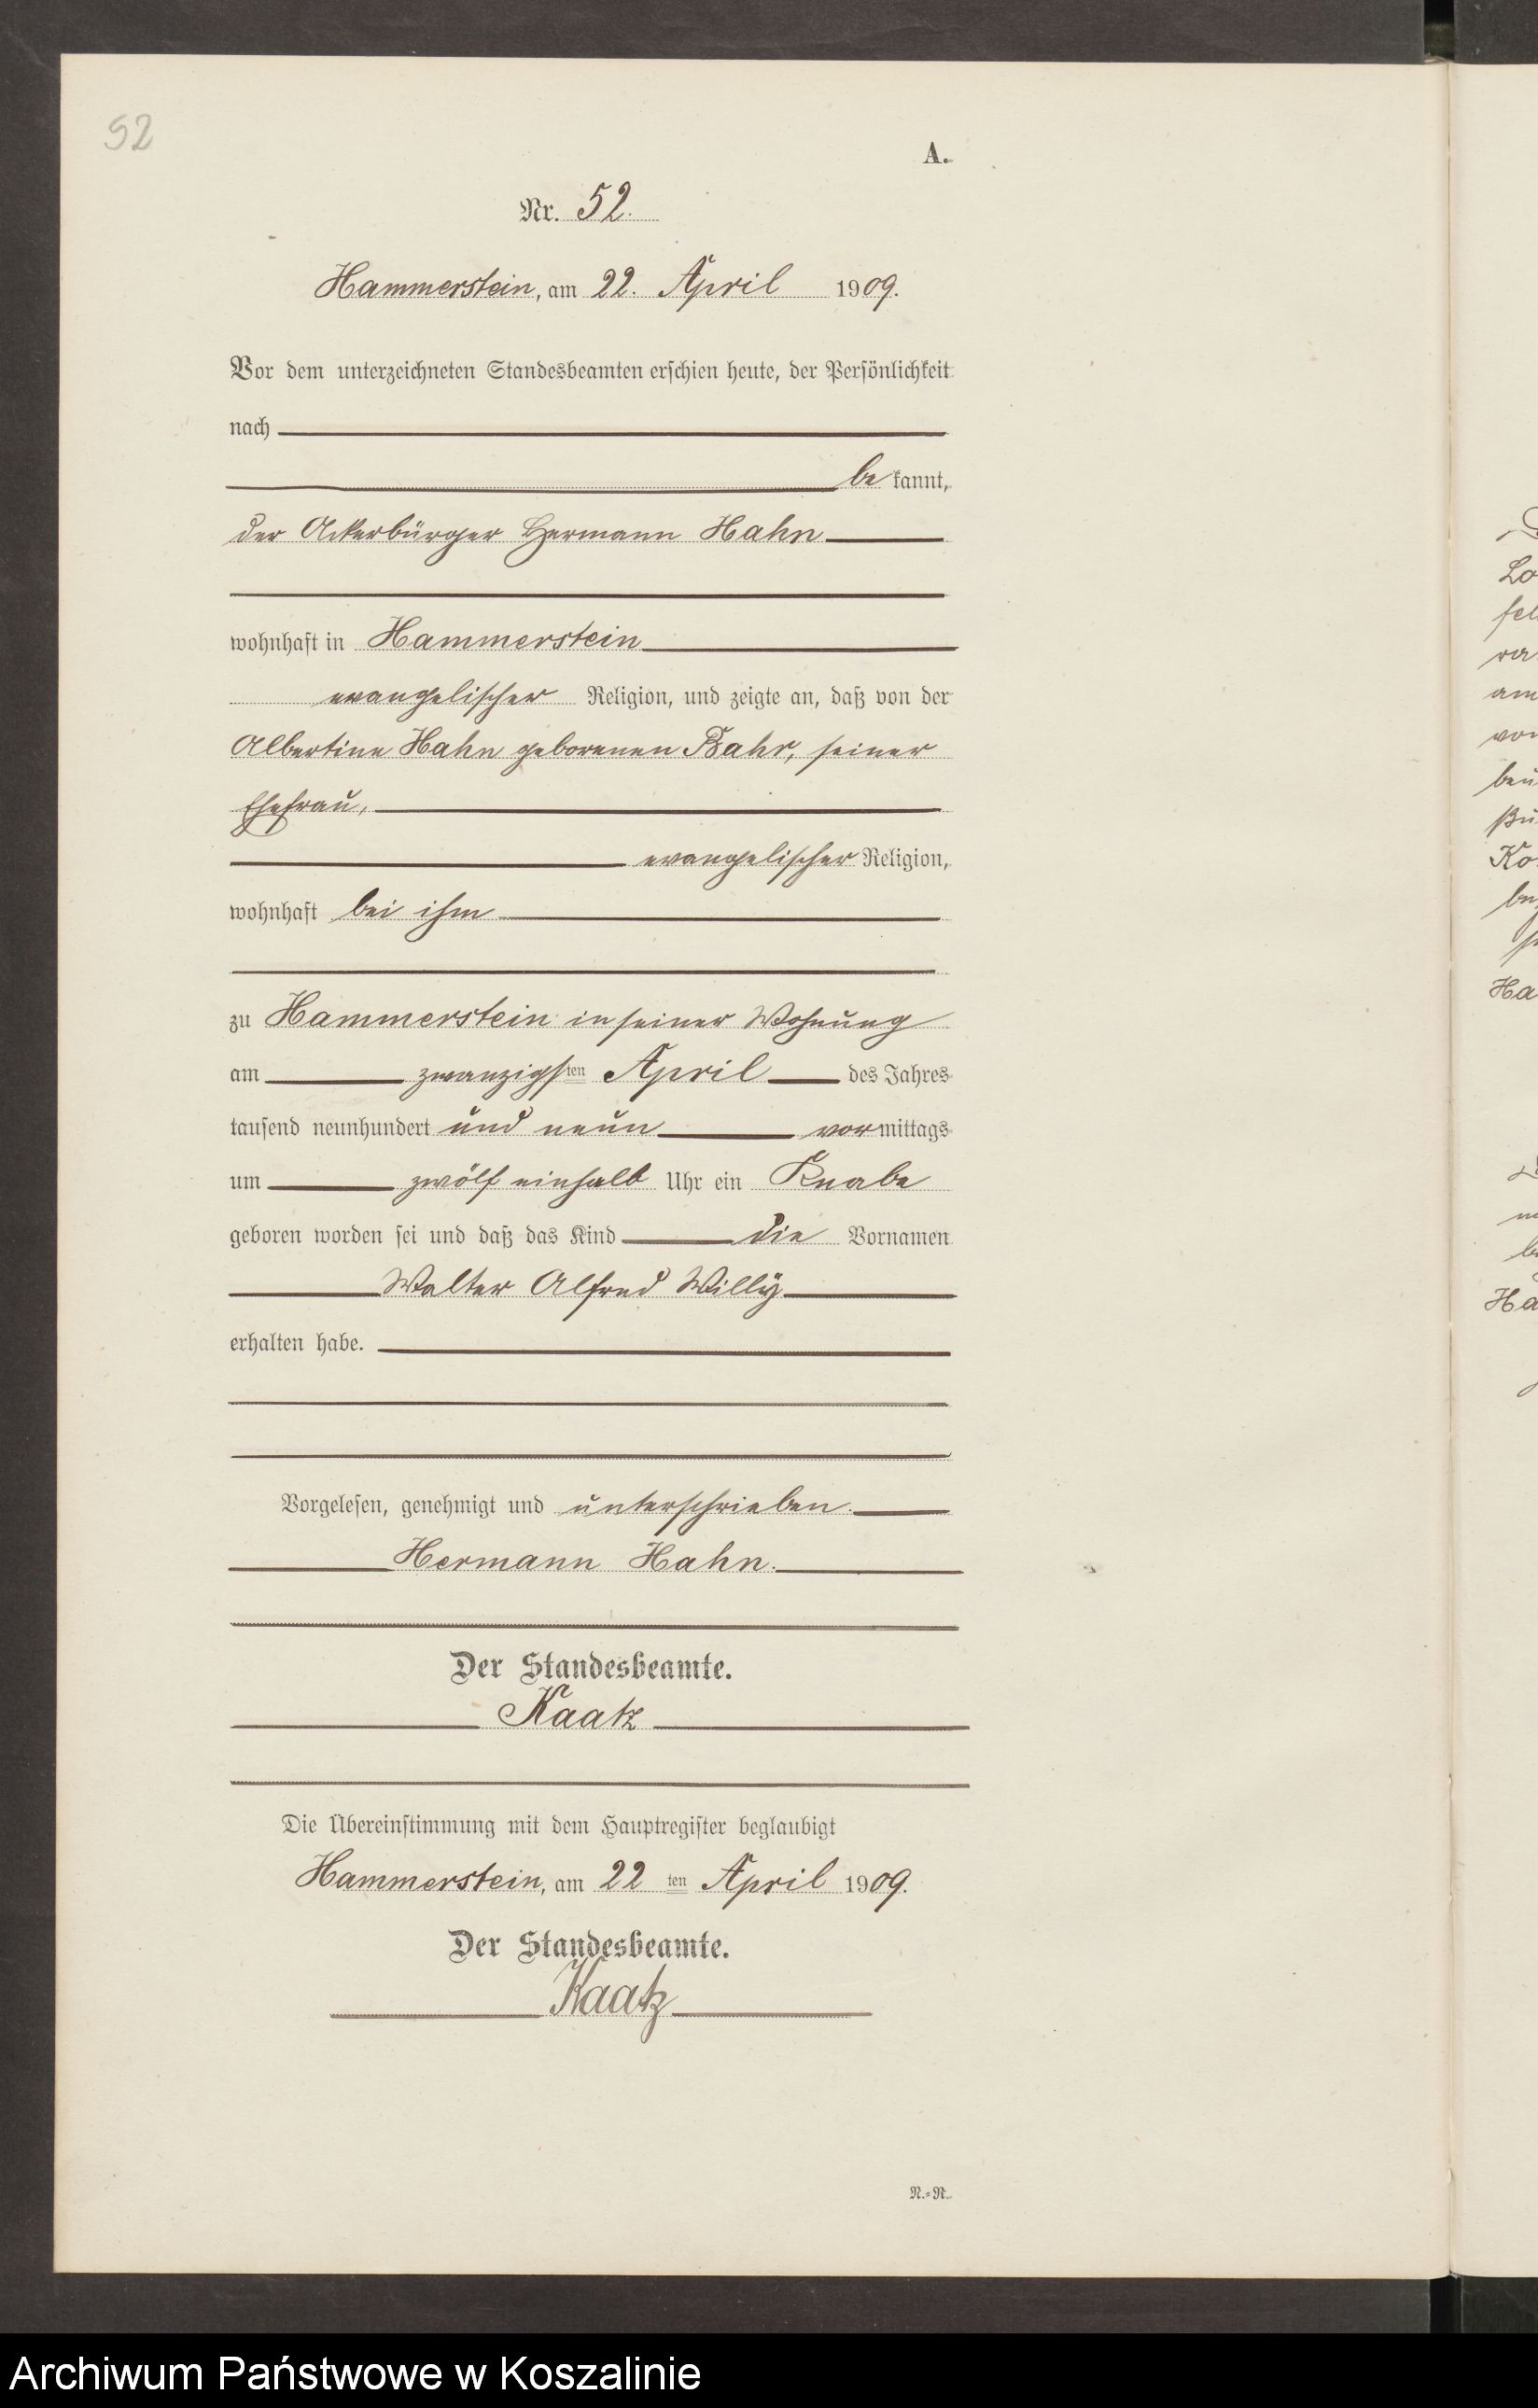 52
A.
Nr. 52.
Hammerstein, am 22. April 1909.
Vor dem unterzeichneten Standesbeamten erschien heute, der Persönlichkeit
nach
be kannt,
der Ackerbürger Hermann Hahn
wohnhaft in Hammerstein
evangelischer Religion, und zeigte an, daß von der
Albertine Hahn geborenen Bahr, seiner
Ehefrau,
evangelischer Religion,
wohnhaft bei ihm
zu Hammerstein in seiner Wohnung
am zwanzigsten April des Jahres
tausend neunhundert und neun vormittags
um zwölf einhalb Uhr ein Knabe
geboren worden sei und daß das Kind die Vornamen
Walter Alfred Willy
erhalten habe.
Vorgelesen, genehmigt und unterschrieben.
Hermann Hahn.
Der Standesbeamte.
Kaatz
Die Übereinstimmung mit dem Hauptregister beglaubigt
Hammerstein, am 22 ten April 1909.
Der Standesbeamte.
Kaatz
N.=R.
Archiwum Państwowe w Koszalinie